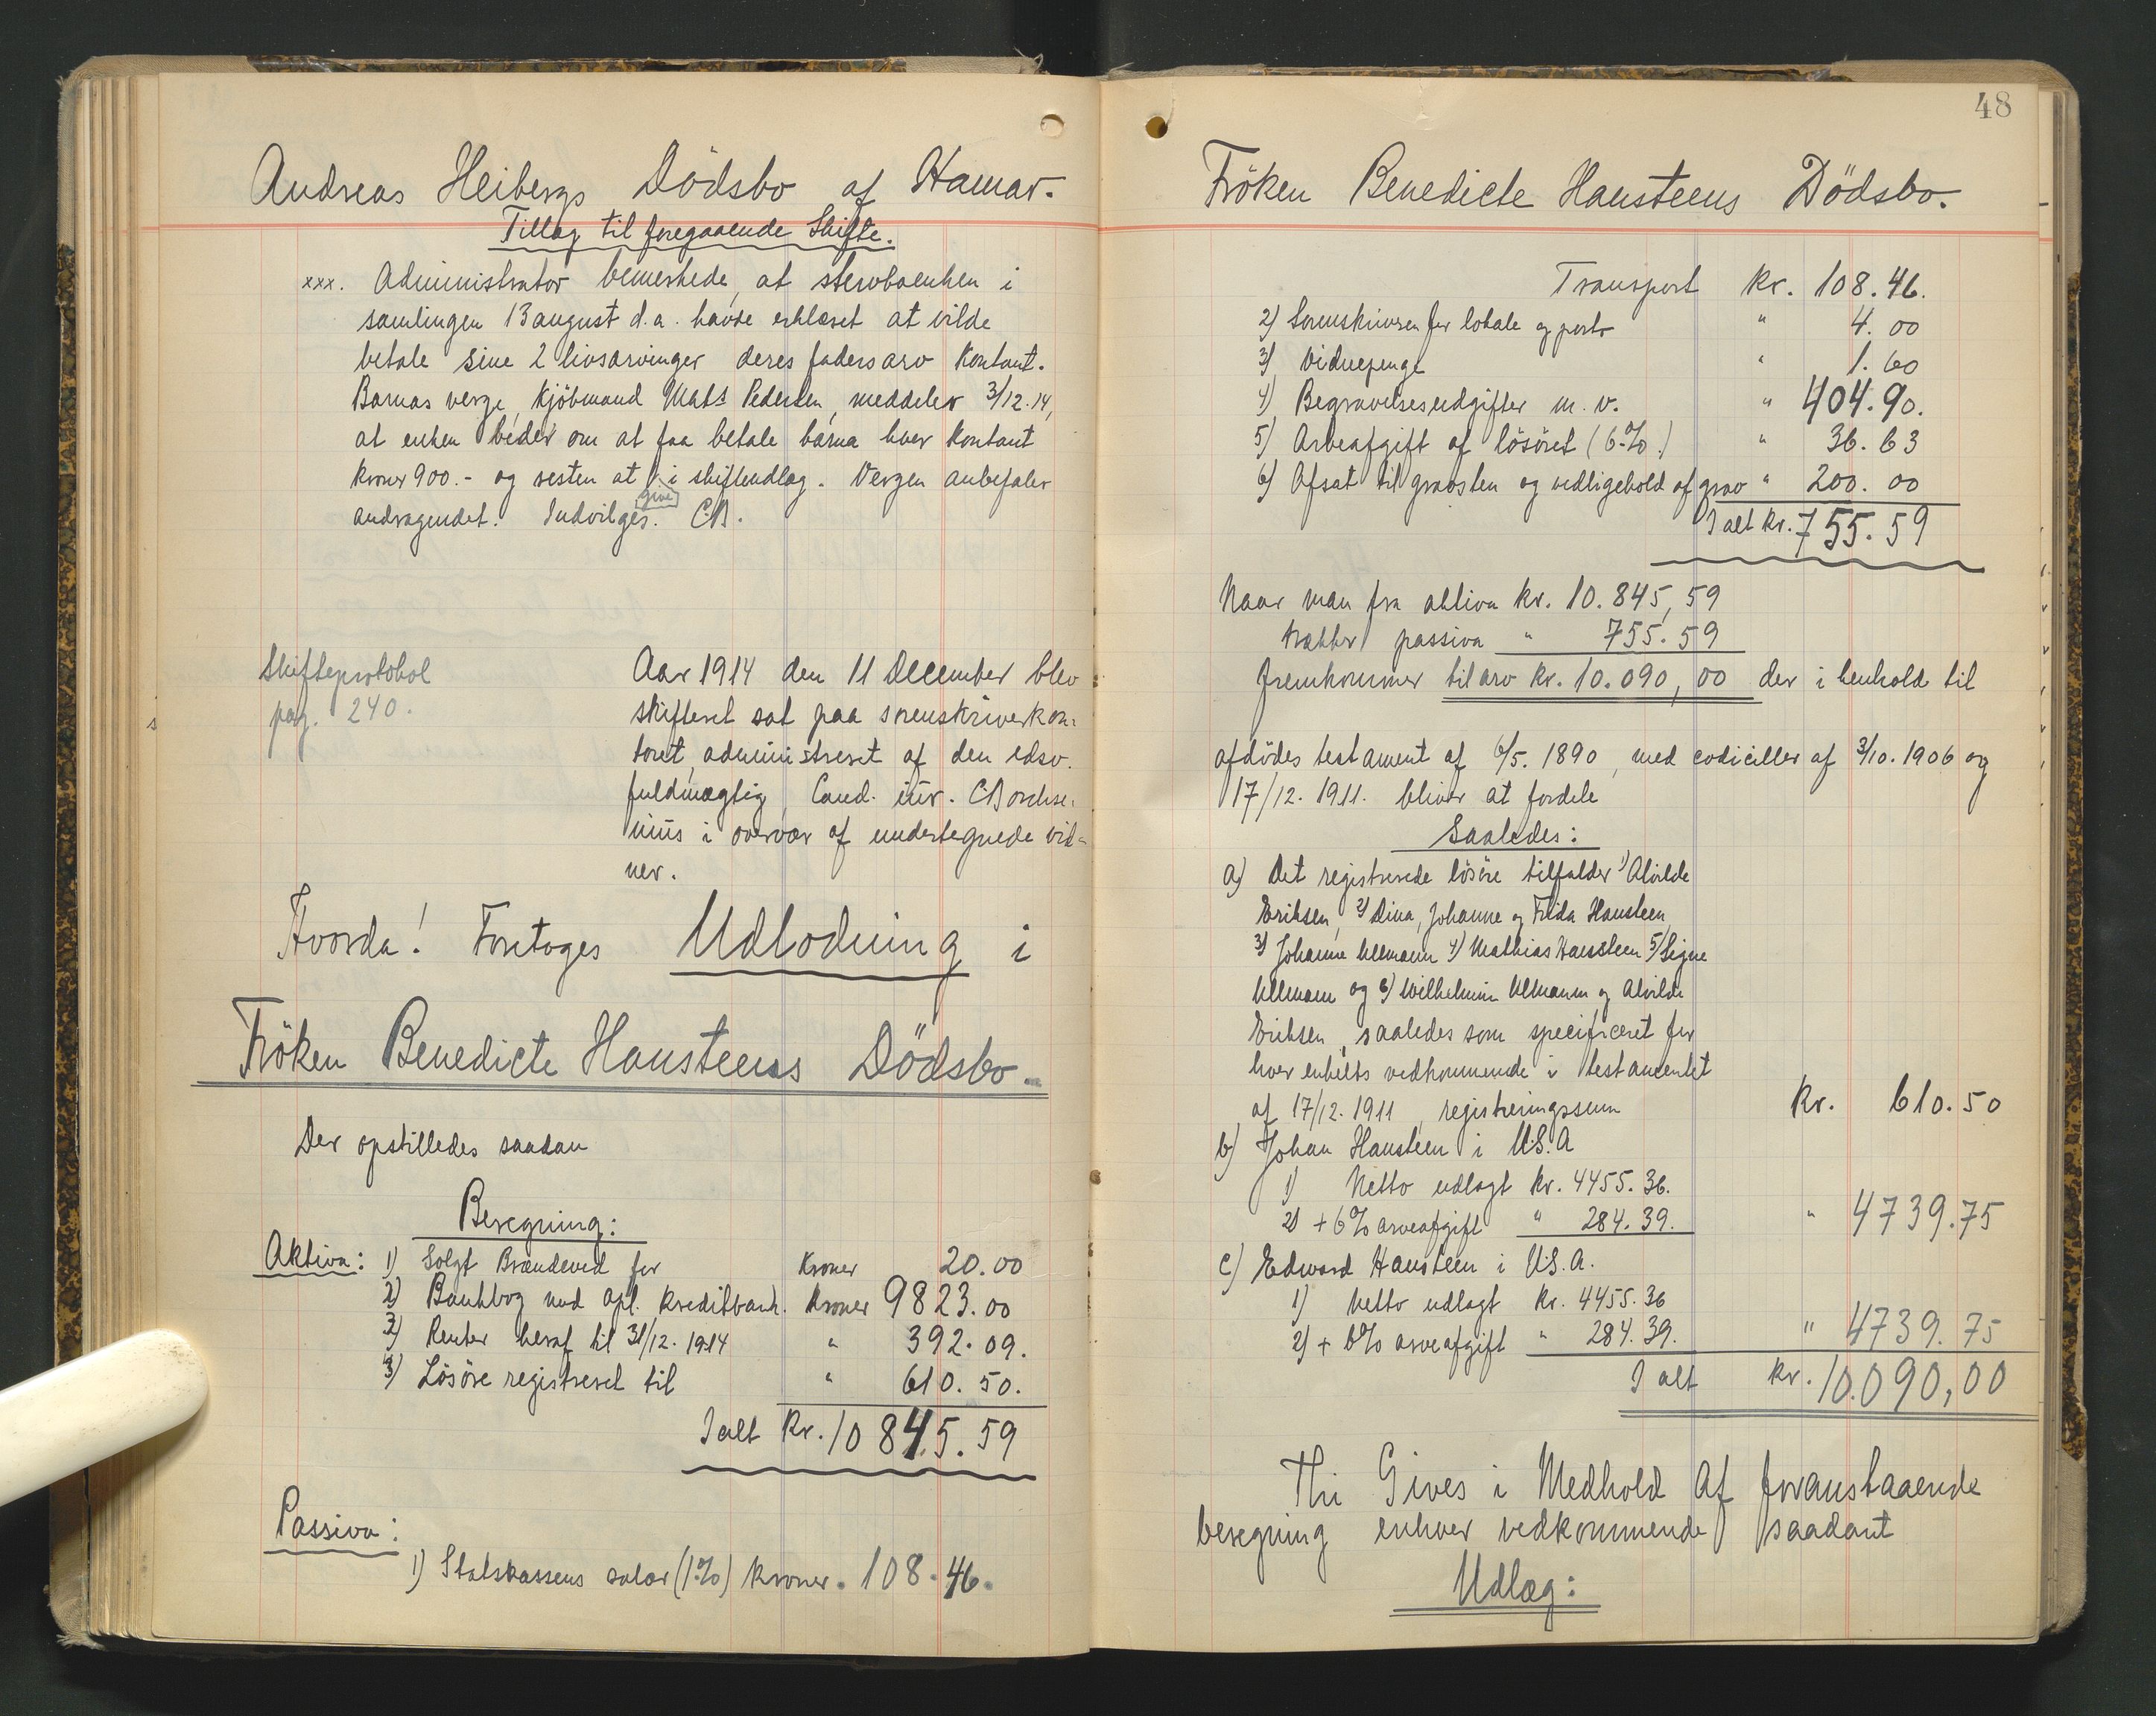 Andreas Heibergs Dödsbo af Hamar.
Tillæg til foregaaende Skifte.
xxx. Administrator bemerkede, at stervboenken i
samlingen 13 august d.a. havde erklæret at vilde
betale sine 2 livsarvinger deres fadersarv kontant.
Barnas verge, kjöbmand Mats Pedersen, meddeler 3/12.14,
at enken beder om at faa betale barna hver kontant
kroner 900.- og resten at i skifteudlæg. Vergen anbefaler
give
andragendet. Indvilges. CB.
Skifteprotokol
pag. 240.
Aar 1914 den 11 December blev
skifteret sat paa sorenskriverkon-
toret, administreret af den edsv.
fuldmægtig, Cand. jur. C Borchse-
nius i overvær af undertegnede vid-
ner.
Hvorda! Foretoges Udlodning i
Fröken Benedicte Hansteens Dödsbo.
Der opstilledes saadan
Beregning:
Aktiva: 1) Solgt Brændeved for Kroner 20.00
2) Bankbog med opl. kreditbank. Kroner 9823.00
3) Renter heraf til 31/12. 1914 " 392.09.
3) Lösöre registreret til " 610.50.
I alt Kr. 10845.59
Passiva:
1) Statskassens salær (1%) kroner. 108.46.
48
Fröken Benedicte Hansteens Dödsbo.
Transport kr. 108.46.
2) Sorenskriveren for lokale og porto " 4.00
3) Vidnepenge " 1.60
4) Begravelsesudgifter m.v. " 404.90.
5) Arveafgift af lösöret (6%) " 36.63
6) Afsat til gravsten og vedligehold af grav " 200.00
I alt kr. 755.59
Naar man fra aktiva kr. 10.845,59
trækker passiva " 755.59
fremkommer til arv kr. 10.090,00 der i henhold til
afdödes testament af 6/5. 1890, med codiciller af 3/10. 1906 og
17/12. 1911. bliver at fordele
Saaledes:
a) Det registrerede lösöre tilfalder 1) Alvilde
Eriksen, 2) Dina, Johanne og Frida Hansteen
3) Johanne Ullmann 4) Mathias Hansteen 5) Signe
Ullmann og 6) Wilhelmine Ullmann og Alvilde
Eriksen, saaledes som specificeret for
hver enkelts vedkommende i testamentet
af 17/12. 1911, registreringssum kr. 610.50
b) Johan Hansteen i U.S.A
1) Netto udlagt kr. 4455.36.
2) + 6% arveafgift " 284.39. " 4739.75
c) Edward Hansteen i U.S.A.
1) Netto udlagt kr. 4455.36
2) + 6% arveafgift " 284.39. " 4739.75
I alt kr. 10.090,00
Thi Gives i Medhold Af foranstaaende
beregning enhver vedkommende saadant
Udlæg: